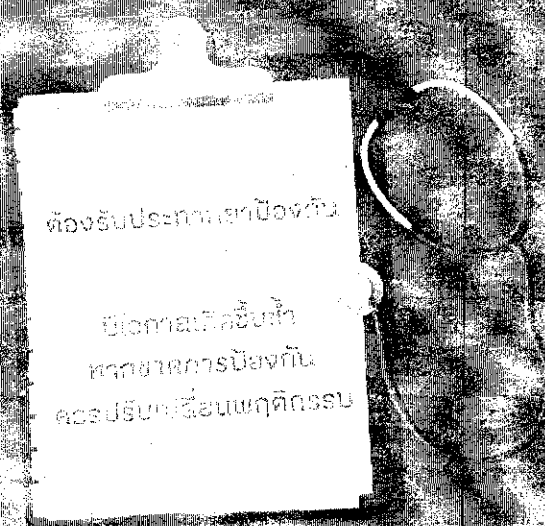 ต้องรับประทานยาป้องกัน
มีโอกาสเกิดขึ้นซ้ำ
หากขาดการป้องกัน
ควรปรับเปลี่ยนพฤติกรรม